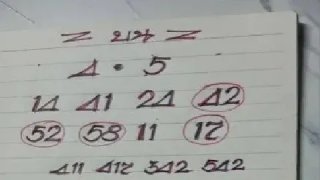 4 • 5
14 41 24 42
52 58 11 17
411 417 342 542